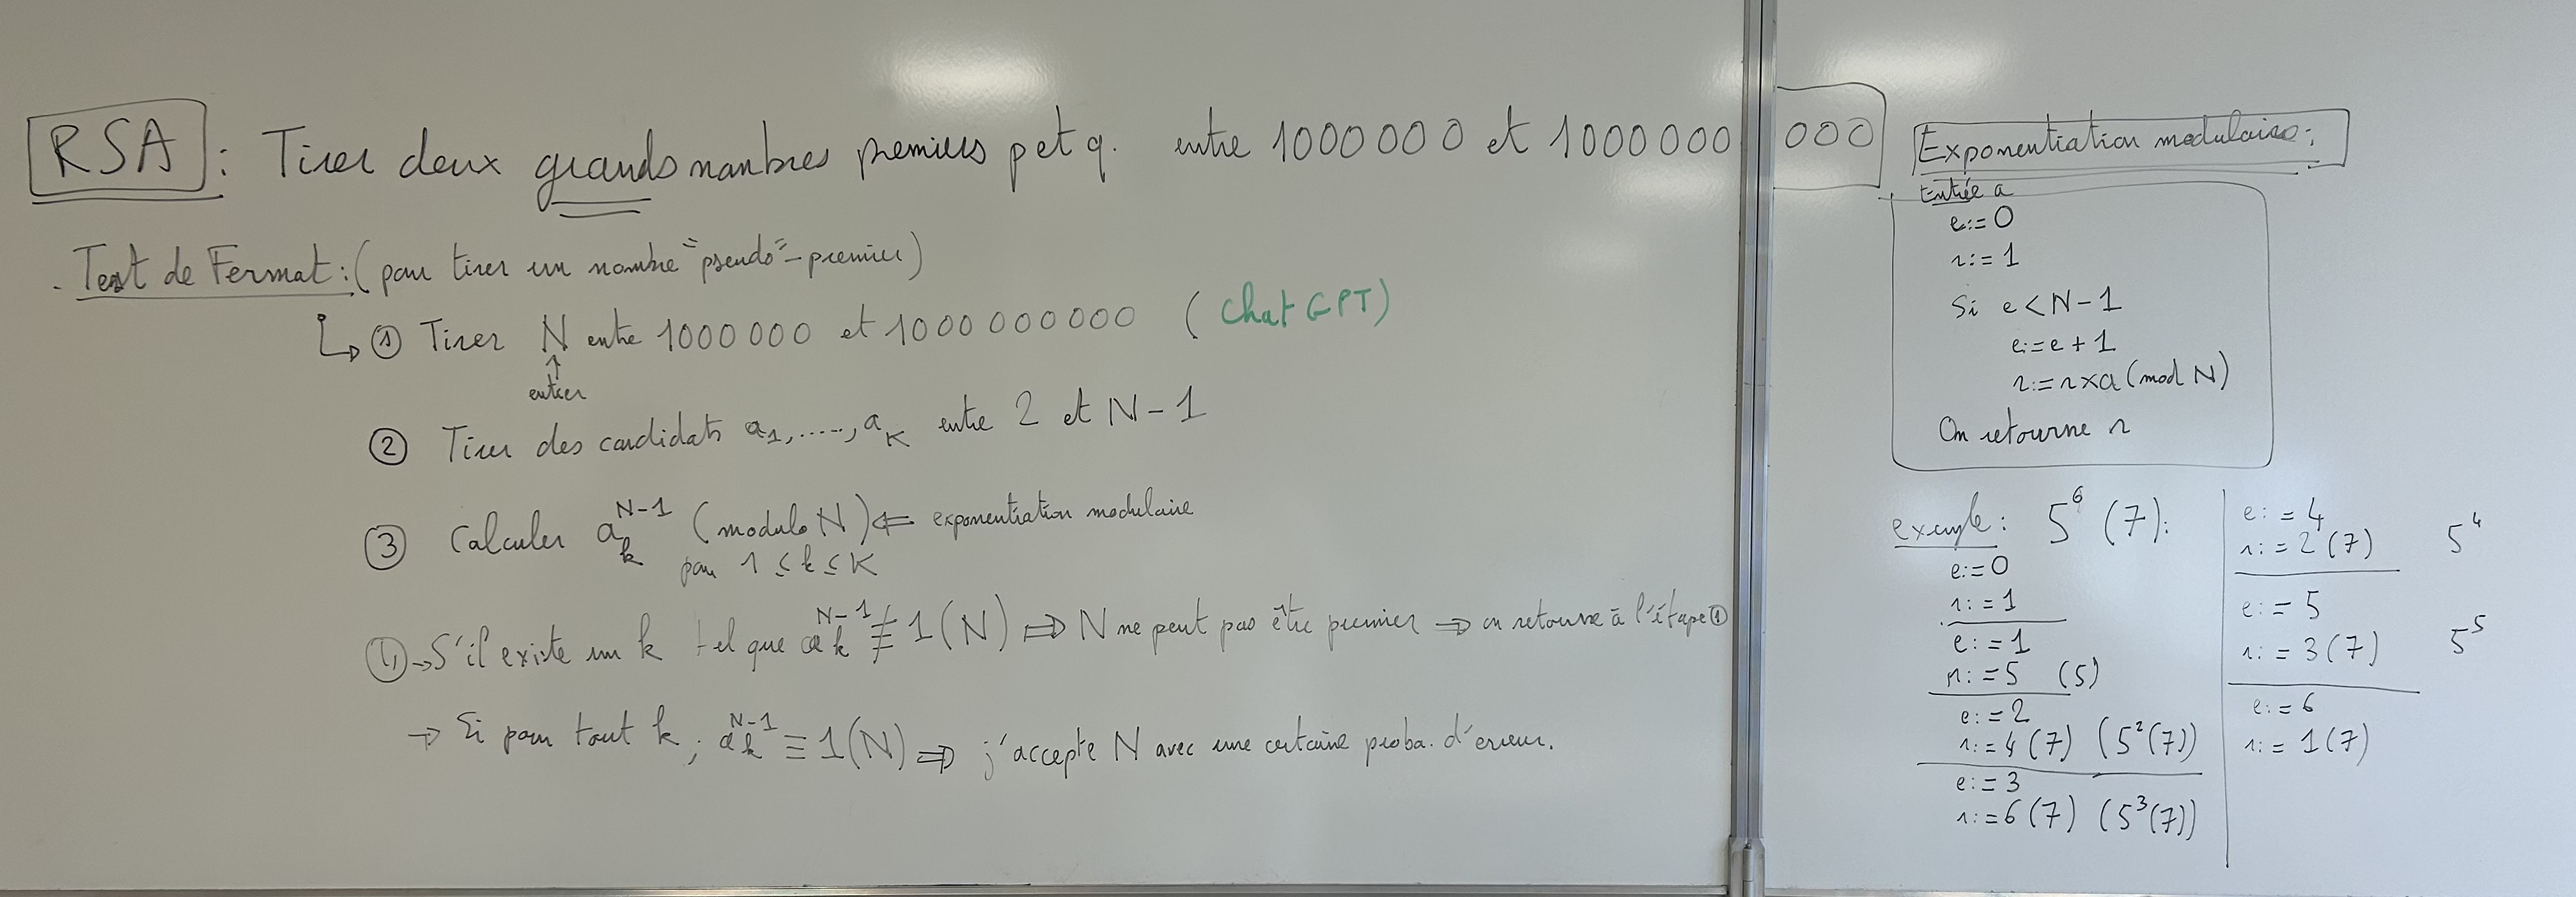 RSA : Tirer deux grands nombres premiers p et q. entre 1000 000 et 1000 000 000
. Test de Fermat : (pour tirer un nombre "pseudo"-premier)
↳ ① Tirer N entre 1000 000 et 1000 000 000 (Chat GPT)
↑
entier
② Tirer des candidats a₁, ....., a_K entre 2 et N-1
③ Calculer a_k^(N-1) (modulo N) ⇐ exponentiation modulaire
pour 1 ≤ k ≤ K
④ → S'il existe un k tel que a_k^(N-1) ≢ 1 (N) ⇒ N ne peut pas être premier ⇒ on retourne à l'étape ①
→ Si pour tout k, a_k^(N-1) ≡ 1 (N) ⇒ j'accepte N avec une certaine proba. d'erreur.
Exponentiation modulaire :
Entrée a
e := 0
r := 1
Si e < N-1
e := e + 1
r := r × a (mod N)
On retourne r
exemple : 5⁶ (7) :
e := 0
r := 1
e := 1
r := 5 (5)
e := 2
r := 4 (7) (5² (7))
e := 3
r := 6 (7) (5³ (7))
e := 4
r := 2 (7) 5⁴
e := 5
r := 3 (7) 5⁵
e := 6
r := 1 (7)